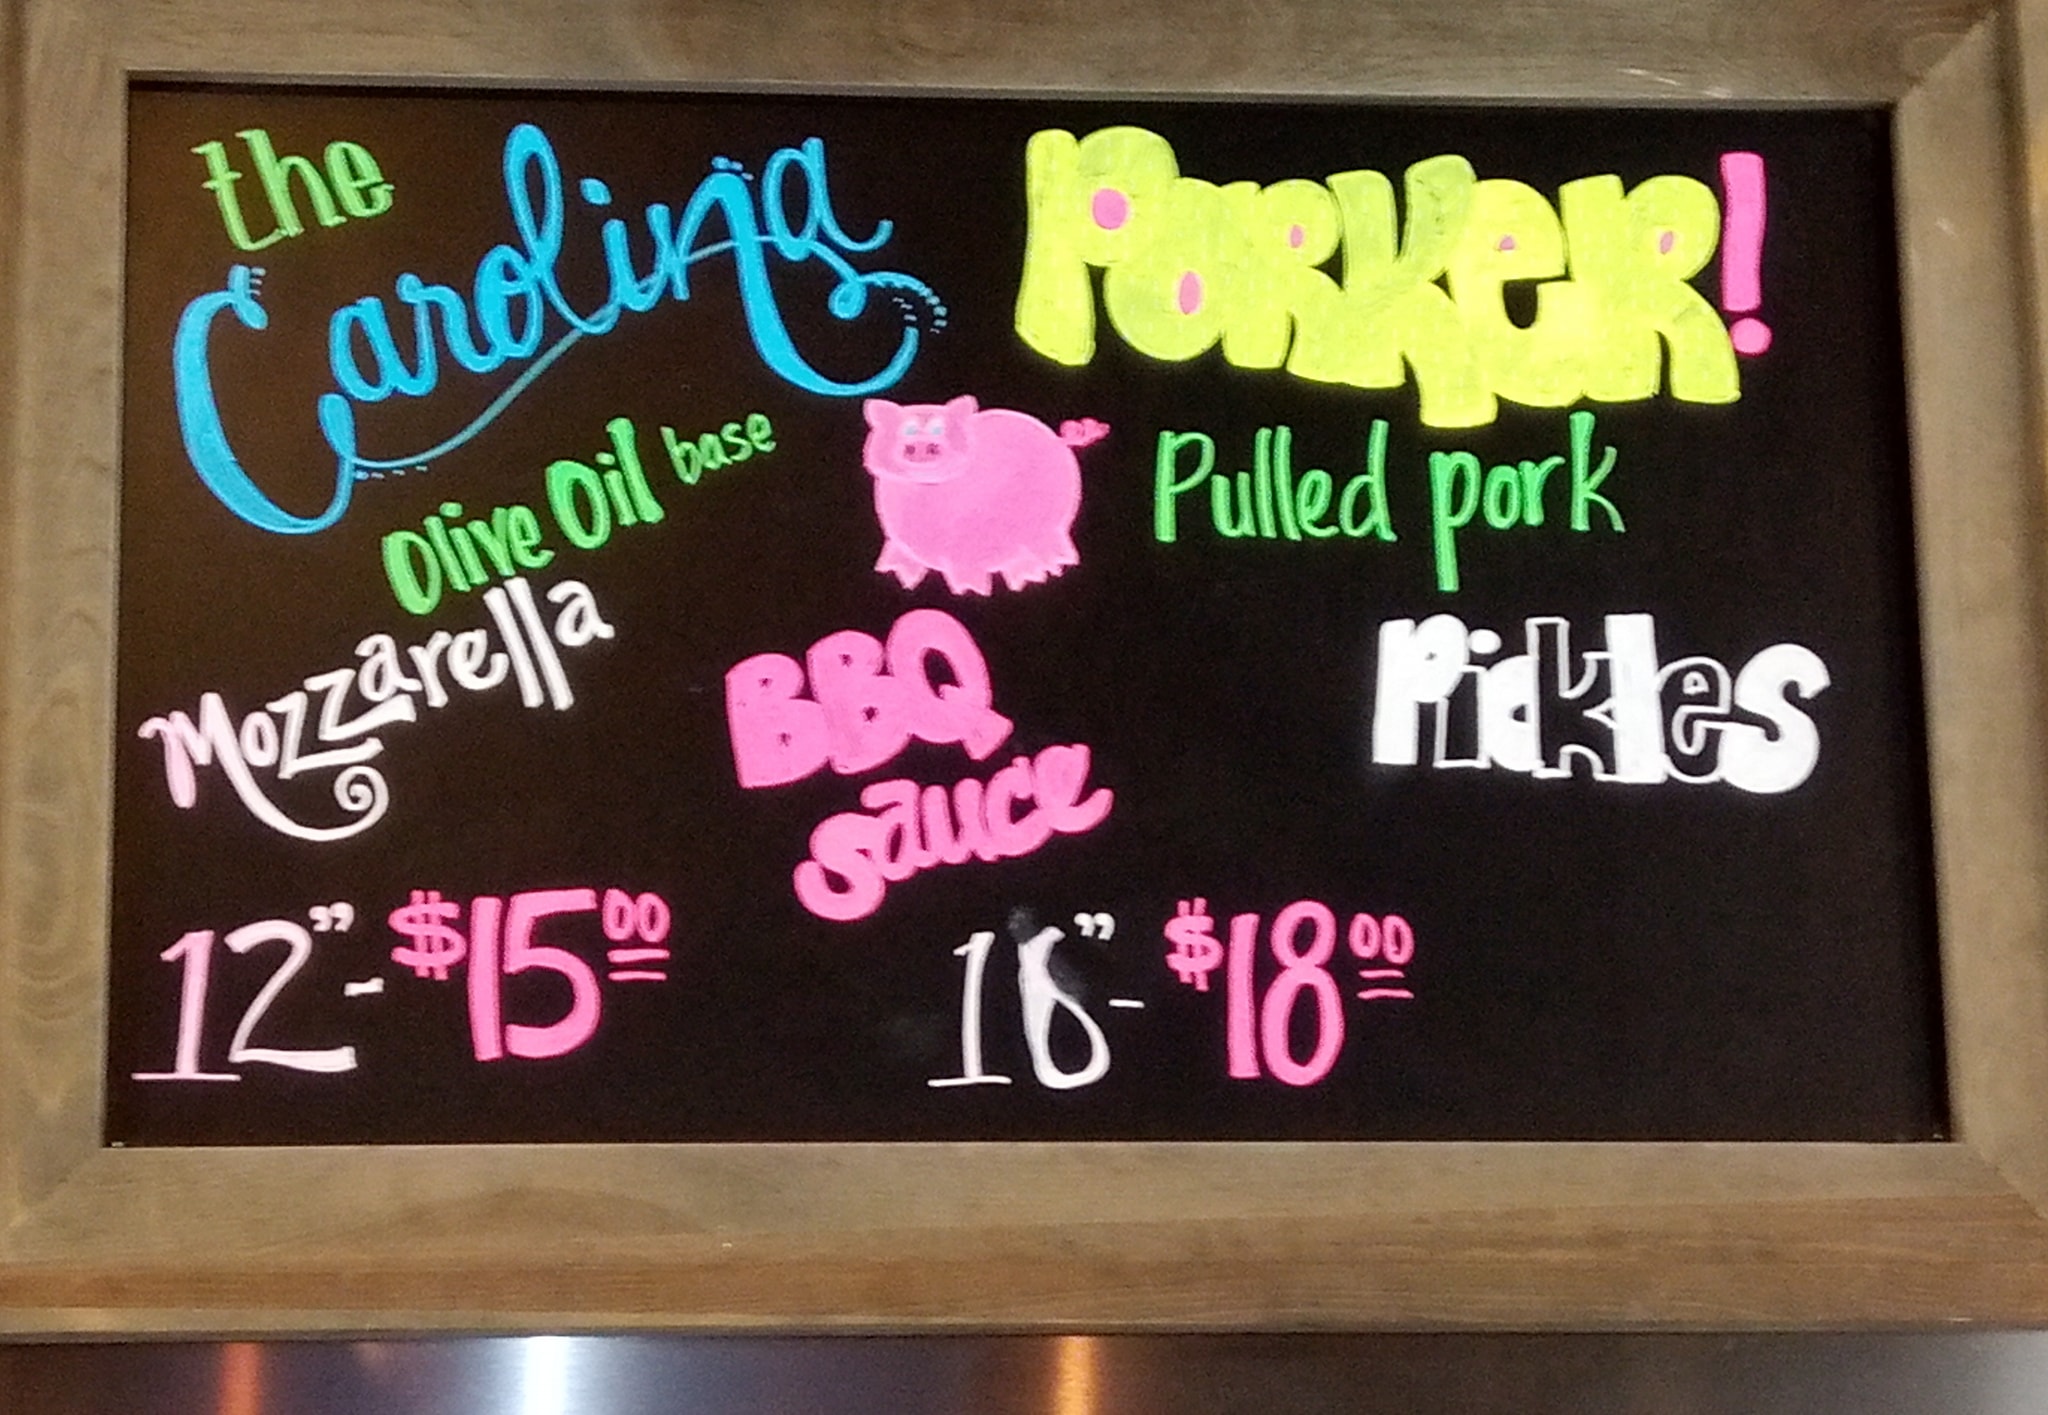 the
Carolina PORKER!
Olive Oil base
Pulled pork
Mozzarella
BBQ
sauce
Pickles
12" - $15.00
16" - $18.00